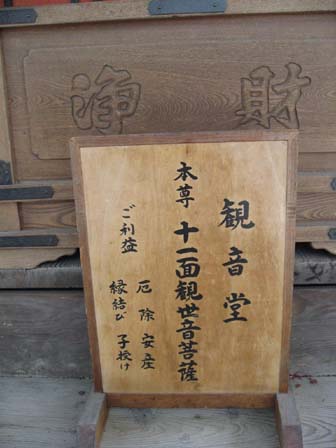 浄財
観音堂
本尊 十一面観世音菩薩
ご利益 厄除 安産
縁結び 子授け